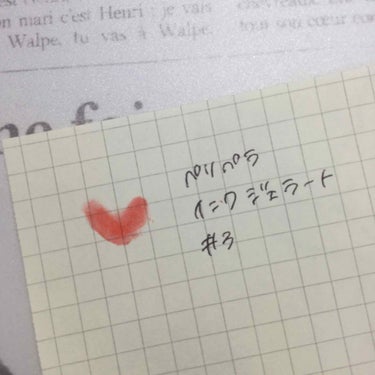 on mari c'est Henri : je vais
Walpe, tu vas à Walpe.
tout son cœur
ペリペラ
インクジェラート
#3